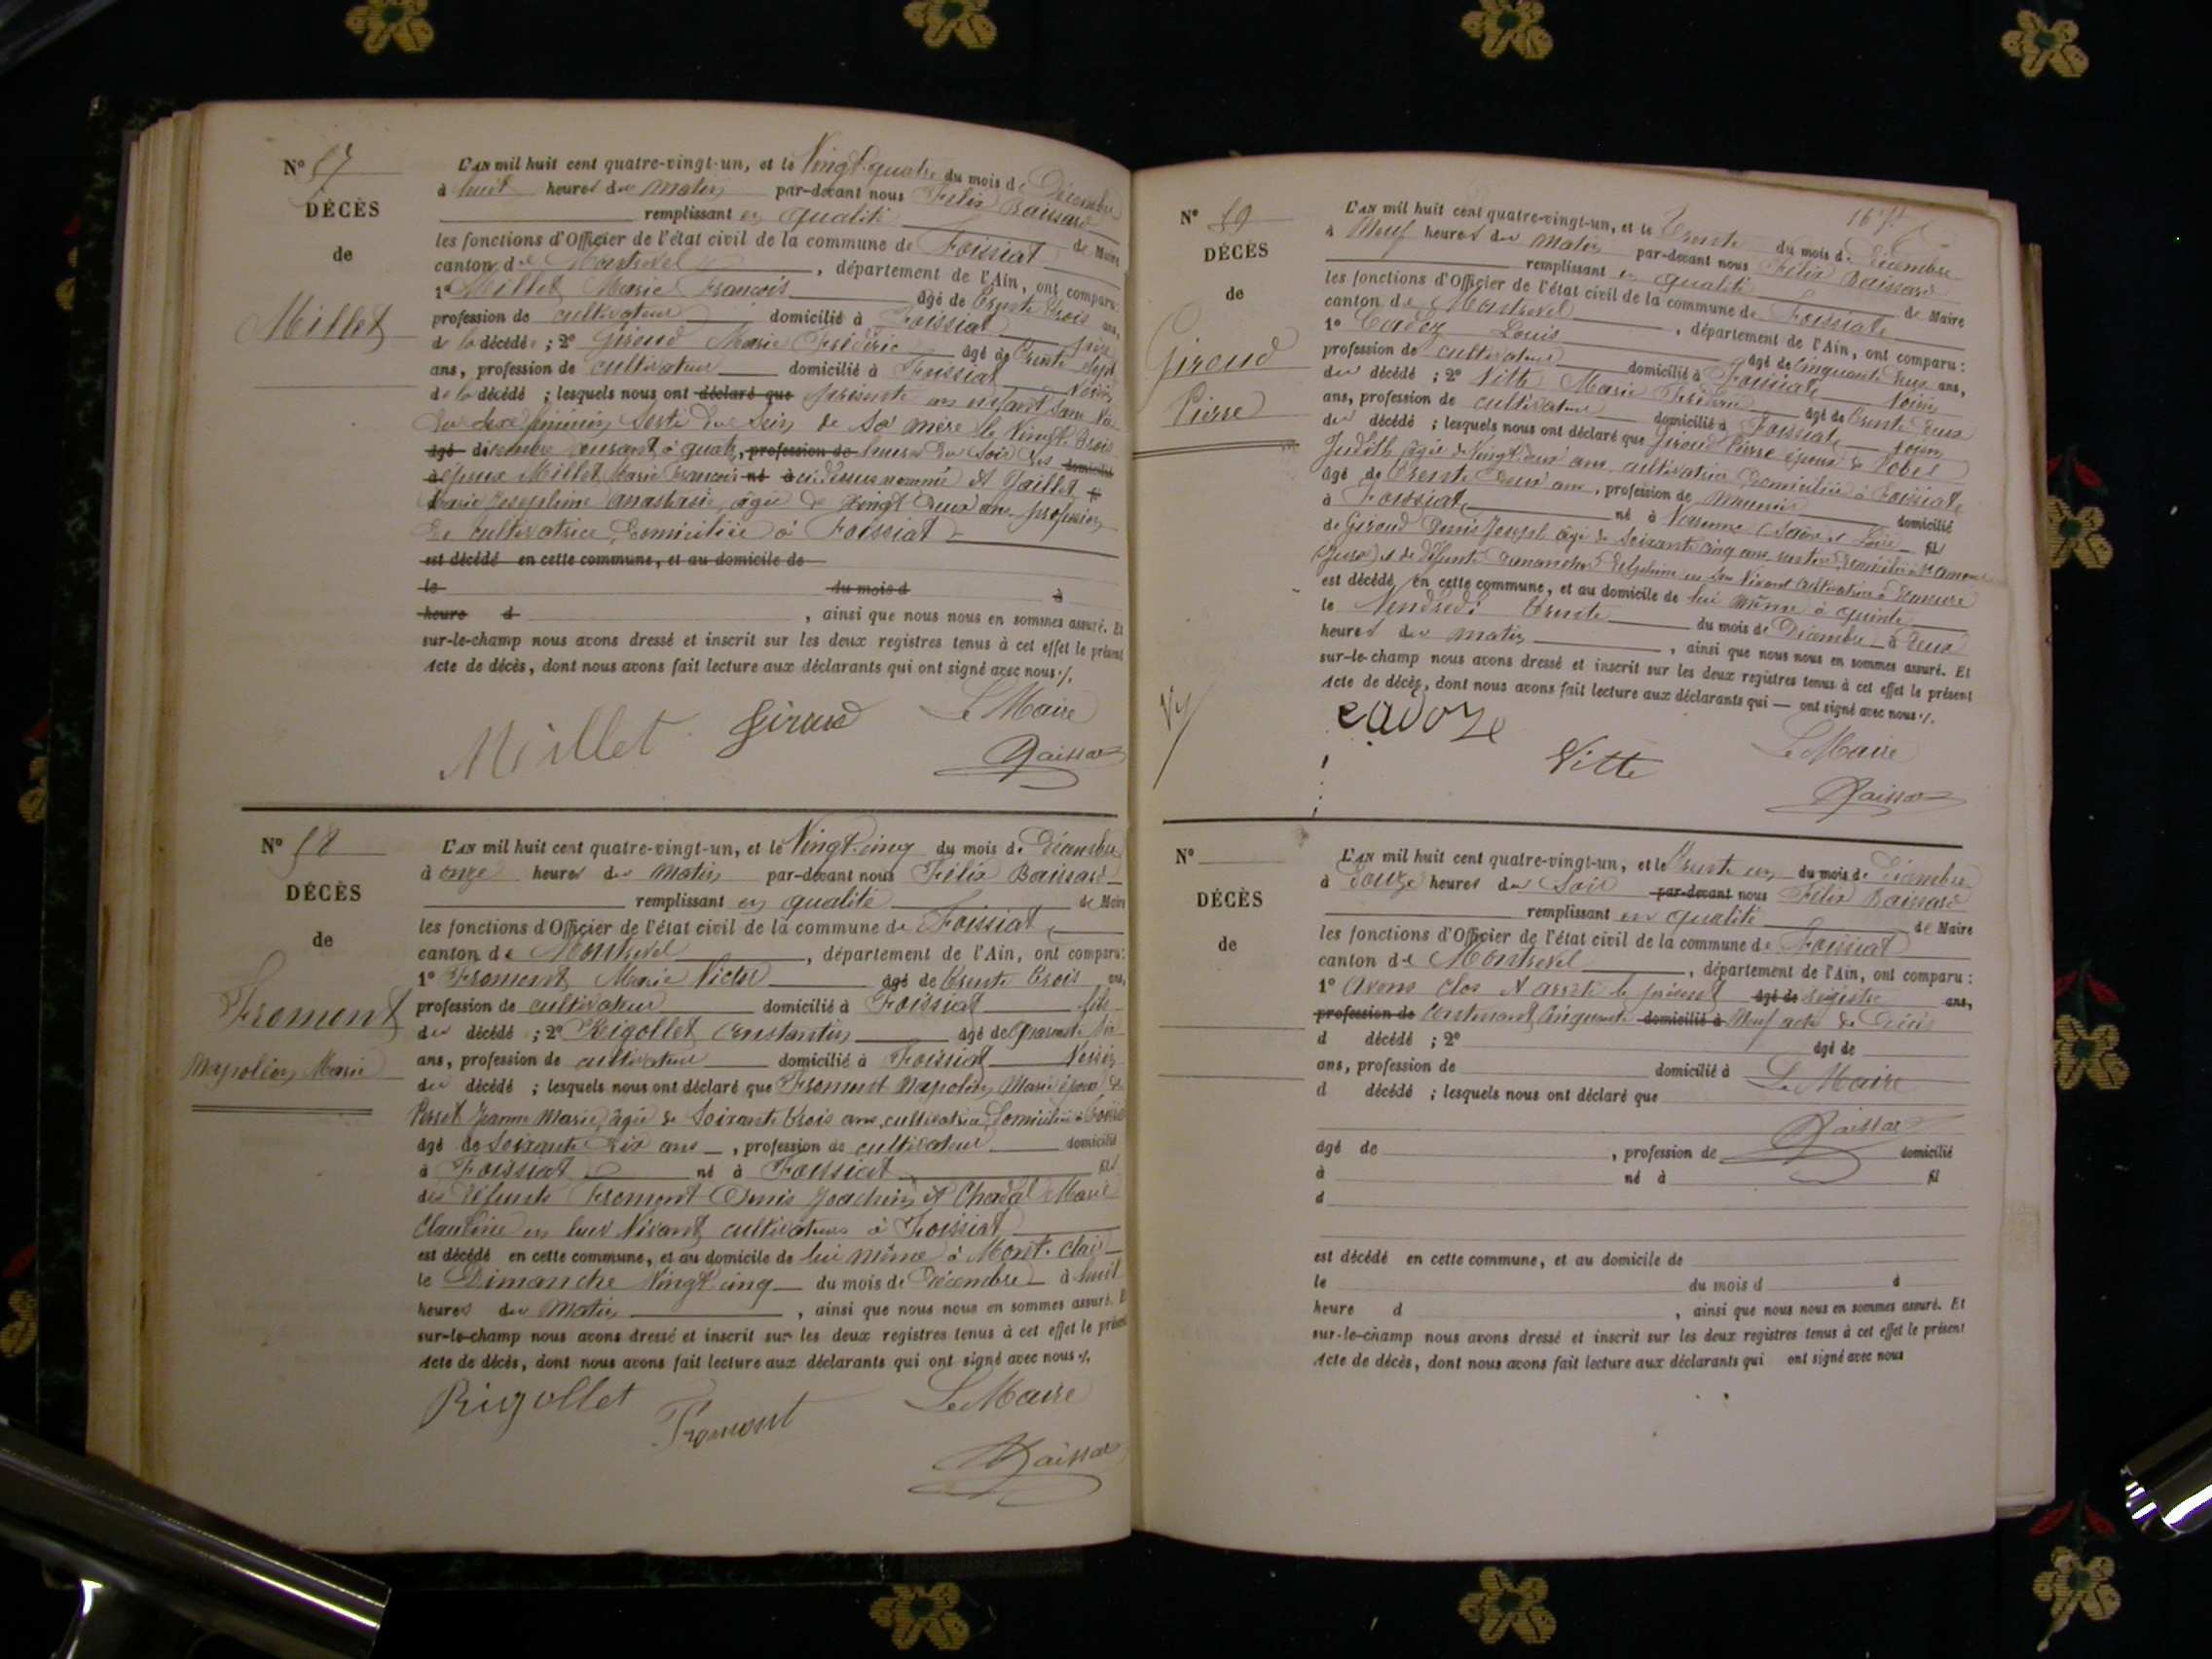 N° 57
DÉCÈS
de
Millet
L'AN mil huit cent quatre-vingt-un, et le Vingt-quatre du mois de Décembre
à huit heures du matin par-devant nous Félix Baissard
remplissant en qualité de Maire
les fonctions d'Officier de l'état civil de la commune de Foissiat
canton de Montrevel, département de l'Ain, ont comparu:
1° Millet Marie François âgé de trente trois ans,
profession de cultivateur domicilié à Foissiat père
de la décédée; 2° Giroud Marie Frédéric âgé de trente sept
ans, profession de cultivateur domicilié à Foissiat voisin
de la décédé; lesquels nous ont déclaré que présenté un enfant sans vie
du sexe féminin sorti du sein de sa mère le vingt trois
âgé décembre courant à quatre, profession de heures du soir des domicilié
à époux Millet Marie François né à ci dessus nommé et Gaillet
Marie Joséphine Anastasie, âgée de vingt deux ans profession
de cultivatrice domiciliée à Foissiat
est décédé en cette commune, et au domicile de
le du mois d à
heure d , ainsi que nous nous en sommes assuré. Et
sur-le-champ nous avons dressé et inscrit sur les deux registres tenus à cet effet le présent
acte de décès, dont nous avons fait lecture aux déclarants qui ont signé avec nous ./.
Millet Giroud Le Maire
Baissard
N° 58
DÉCÈS
de
Fromont
Napoléon Marie
L'AN mil huit cent quatre-vingt-un, et le Vingt-cinq du mois de Décembre
à onze heures du matin par-devant nous Félix Baissard
remplissant en qualité de Maire
les fonctions d'Officier de l'état civil de la commune de Foissiat
canton de Montrevel, département de l'Ain, ont comparu:
1° Fromont Marie Victor âgé de trente trois ans,
profession de cultivateur domicilié à Foissiat fils
du décédé; 2° Rigollet Constantin âgé de quarante six
ans, profession de cultivateur domicilié à Foissiat voisin
du décédé; lesquels nous ont déclaré que Fromont Napoléon Marie époux de
Perret Jeanne Marie, âgée de soixante trois ans, cultivatrice, domiciliée à Foissiat
âgé de soixante dix ans, profession de cultivateur domicilié
à Foissiat né à Foissiat fil
des défunts Fromont Denis Joachim et Chadal Marie
Claudine en leur vivant cultivateurs à Foissiat
est décédé en cette commune, et au domicile de lui même à Mont-clair
le Dimanche Vingt cinq du mois de Décembre à huit
heures du matin, ainsi que nous nous en sommes assuré. Et
sur-le-champ nous avons dressé et inscrit sur les deux registres tenus à cet effet le présent
acte de décès, dont nous avons fait lecture aux déclarants qui ont signé avec nous ./.
Rigollet Fromont Le Maire
Baissard
N° 59
DÉCÈS
de
Giroud
Pierre
L'AN mil huit cent quatre-vingt-un, et le Trente du mois de Décembre
à Neuf heures du matin par-devant nous Félix Baissard
remplissant en qualité de Maire
les fonctions d'Officier de l'état civil de la commune de Foissiat
canton de Montrevel, département de l'Ain, ont comparu:
1° Cadoz Louis âgé de cinquante deux ans,
profession de cultivateur domicilié à Foissiat voisin
du décédé; 2° Vitte Marie Frédéric âgé de trente deux
ans, profession de cultivateur domicilié à Foissiat voisin
du décédé; lesquels nous ont déclaré que Giroud Pierre époux de Nobel
Judith âgée de vingt deux ans cultivatrice domiciliée à Foissiat
âgé de trente deux ans, profession de meunier domicilié
à Foissiat né à Varenne (Saône et Loire fil
de Giroud Denis Joseph âgé de soixante cinq ans rentier domicilié à St Amour
(Jura) et de défunte Delphine en son vivant cultivatrice
est décédé en cette commune, et au domicile de lui même à
le Vendredi trente du mois de Décembre à deux
heures du matin, ainsi que nous nous en sommes assuré. Et
sur-le-champ nous avons dressé et inscrit sur les deux registres tenus à cet effet le présent
acte de décès, dont nous avons fait lecture aux déclarants qui — ont signé avec nous ./.
cadoz
Vitte
Le Maire
Baissard
N°
DÉCÈS
de
L'AN mil huit cent quatre-vingt-un, et le Trente un du mois de Décembre
à Douze heures du soir par-devant nous Félix Baissard
remplissant en qualité de Maire
les fonctions d'Officier de l'état civil de la commune de Foissiat
canton de Montrevel, département de l'Ain, ont comparu:
1° Avons clos et arrêté le présent âgé de registre ans,
profession de contenant Cinquante domicilié à Neuf actes de Décès
d décédé; 2° âgé de
ans, profession de domicilié à Le Maire
d décédé; lesquels nous ont déclaré que
Baissard
âgé de , profession de domicilié
à né à fil
d
est décédé en cette commune, et au domicile de
le du mois d à
heure d , ainsi que nous nous en sommes assuré. Et
sur-le-champ nous avons dressé et inscrit sur les deux registres tenus à cet effet le présent
acte de décès, dont nous avons fait lecture aux déclarants qui ont signé avec nous